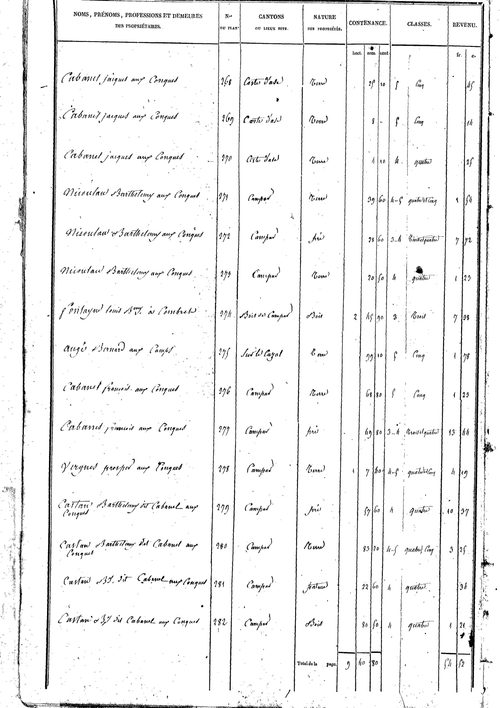 NOMS, PRÉNOMS, PROFESSIONS ET DEMEURES DES PROPRIÉTAIRES. Nos DU PLAN CANTONS OU LIEUX DITS. NATURE DES PROPRIÉTÉS. CONTENANCE. CLASSES. REVENU.
hect. ares cent fr. c.
Cabanel jacques aux Conquet 268 Coste d'ase Terre 25 10 5 Cinq 45
Cabanel jacques aux Conquet 269 Coste d'ase Terre 8 - 5 Cinq 14
Cabanel jacques aux Conquet 270 Coste d'ase Terre 4 10 4 quatre 25
Barthelemy aux Conquet 271 Campas Terre 39 60 4-5 quatre et Cinq 1 54
Barthelemy aux Conquet 272 Campas pré 38 60 3-4 Trois et quatre 7 72
Barthelemy aux Conquet 273 Campas Terre 20 50 4 quatre 1 23
louis à Combret 274 Bois del Campas Bois 2 45 90 3 Trois 7 38
Augé Bernard aux Camps 275 Terre 99 10 5 Cinq 1 78
Cabanel francois aux Conquet 276 Campas Terre 68 80 5 Cinq 1 23
Cabanel francois aux Conquet 277 Campas pré 69 80 3-4 Trois et quatre 13 44
Vergnes prosper aux Conquet 278 Campas Terre 1 7 60 4-5 quatre et Cinq 4 19
Castan Barthelemy dit Cabanel aux Conquet 279 Campas pré 57 60 4 quatre 10 37
Castan Barthelemy dit Cabanel aux Conquet 280 Campas Terre 83 20 4-5 quatre et Cinq 3 25
Castan Bt. dit Cabanel aux Conquet 281 Campas pature 22 60 4 quatre 34
Castan Bt dit Cabanel aux Conquet 282 Campas Bois 80 50 4 quatre 1 21
Total de la page. 9 40 80 54 52